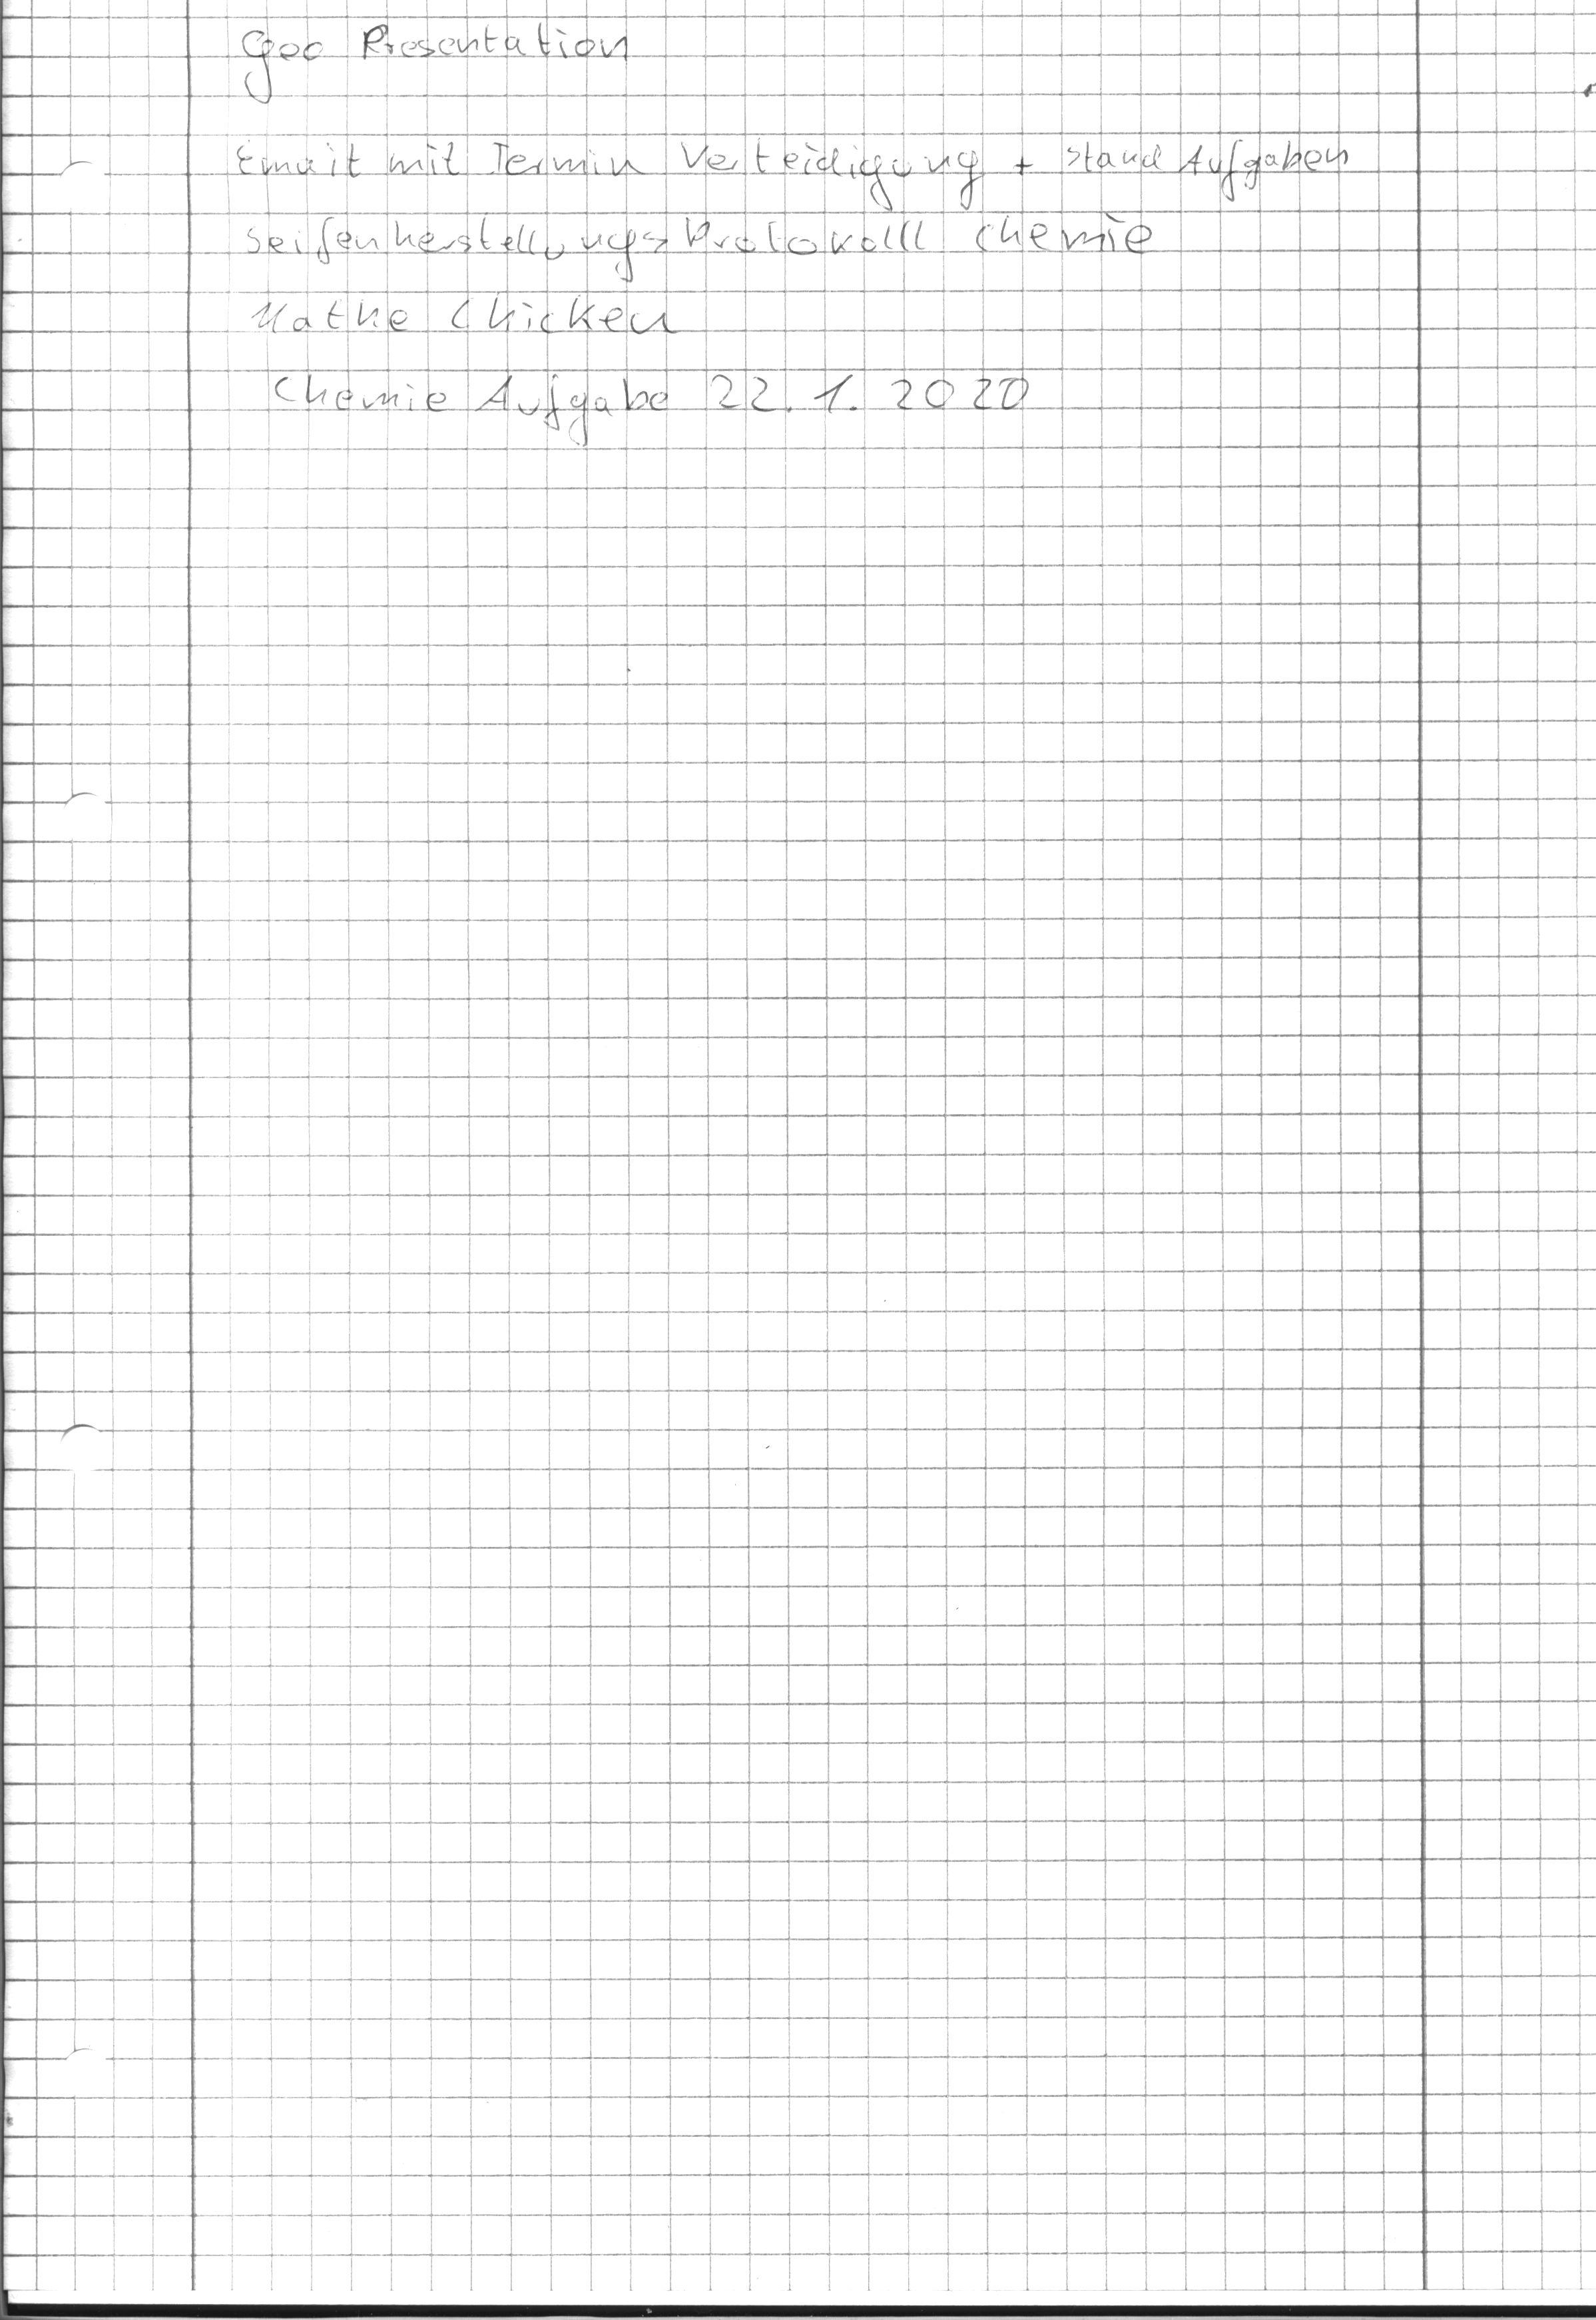 Geo Presentation
Email mit Termin Verteidigung + Stand Aufgaben
Seifenherstellungs Protokolll Chemie
Mathe Chicken
Chemie Aufgabe 22.1.2020